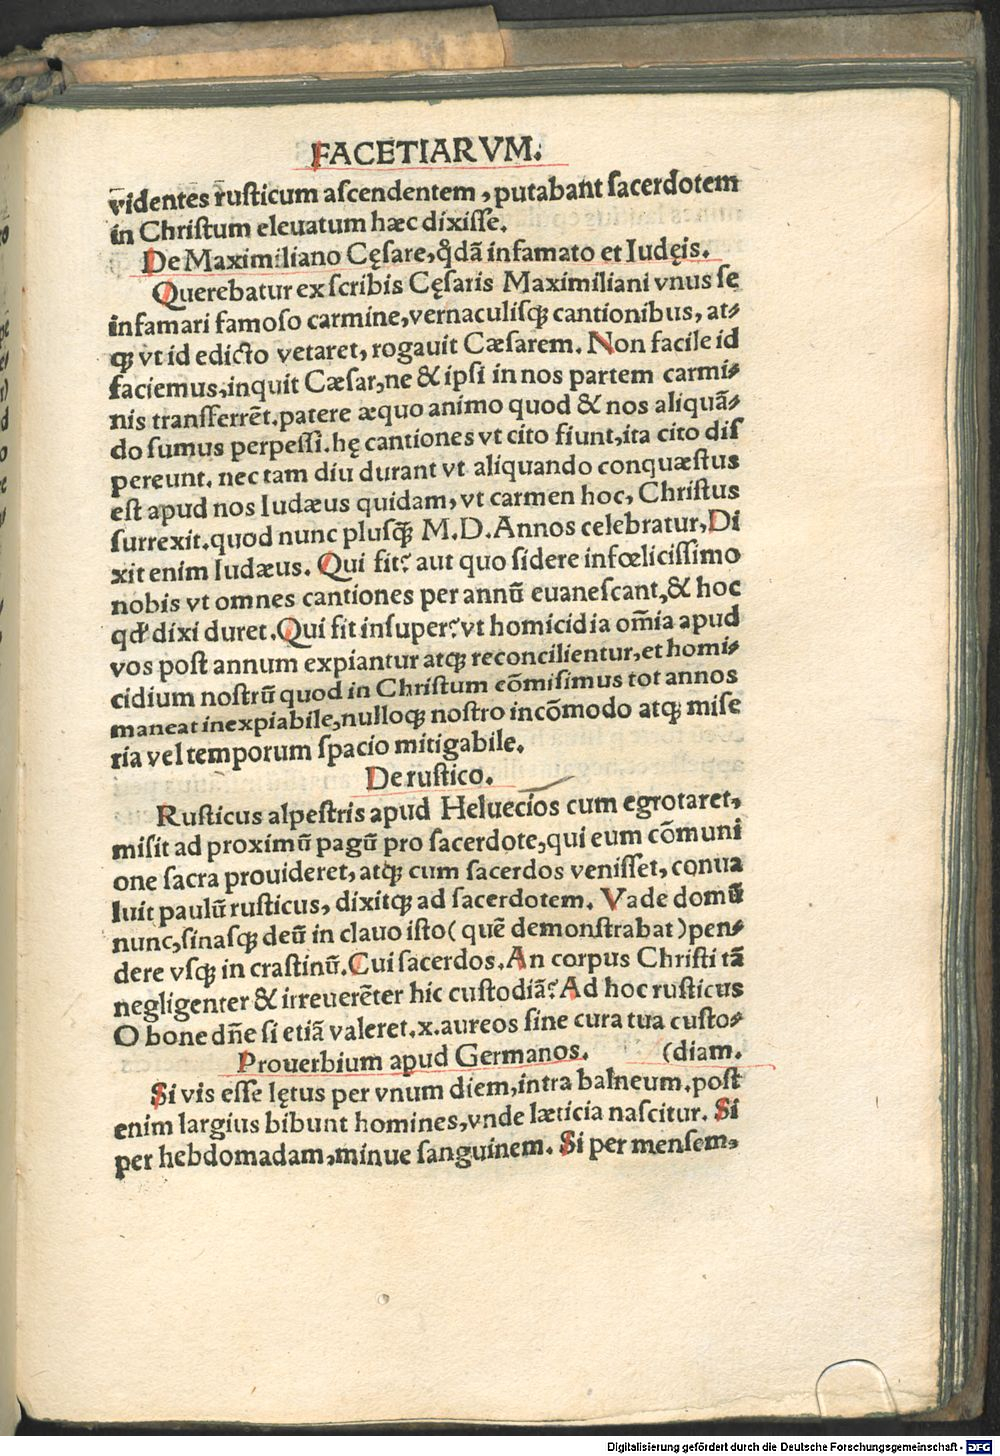 FACETIARVM.
videntes rusticum ascendentem, putabant sacerdotem
in Christum eleuatum hæc dixisse.
De Maximiliano Cęsare, q̃dã infamato et Iudęis.
Querebatur ex scribis Cęsaris Maximiliani vnus se
infamari famoso carmine, vernaculisqꝫ cantionibus, at⸗
qꝫ vt id edicto vetaret, rogauit Cæsarem. Non facile id
faciemus, inquit Cæsar, ne & ipsi in nos partem carmi⸗
nis transferrẽt. patere æquo animo quod & nos aliquã⸗
do sumus perpessi. hę cantiones vt cito fiunt, ita cito dis
pereunt. nec tam diu durant vt aliquando conquæstus
est apud nos Iudæus quidam, vt carmen hoc, Christus
surrexit. quod nunc plusqꝫ M.D. Annos celebratur, Di
xit enim Iudæus. Qui fit? aut quo sidere infœlicissimo
nobis vt omnes cantiones per annũ euanescant, & hoc
qđ dixi duret. Qui fit insuper? vt homicidia om̃ia apud
vos post annum expiantur atqꝫ reconcilientur, et homi⸗
cidium nostrũ quod in Christum cõmisimus tot annos
maneat inexpiabile, nulloqꝫ nostro incõmodo atqꝫ mise
ria vel temporum spacio mitigabile.
De rustico.
Rusticus alpestris apud Heluecios cum egrotaret,
misit ad proximũ pagũ pro sacerdote, qui eum cõmuni
one sacra prouideret, atqꝫ cum sacerdos venisset, conua
luit paulũ rusticus, dixitqꝫ ad sacerdotem. Vade domũ
nunc, sinasqꝫ deũ in clauo isto (quẽ demonstrabat) pen⸗
dere vsqꝫ in crastinũ. Cui sacerdos. An corpus Christi tã
negligenter & irreuerẽter hic custodiã? Ad hoc rusticus
O bone dñe si etiã valeret .x. aureos sine cura tua custo⸗
Prouerbium apud Germanos. (diam.
Si vis esse lętus per vnum diem, intra balneum. post
enim largius bibunt homines, vnde læticia nascitur. Si
per hebdomadam, minue sanguinem. Si per mensem,
Digitalisierung gefördert durch die Deutsche Forschungsgemeinschaft - DFG